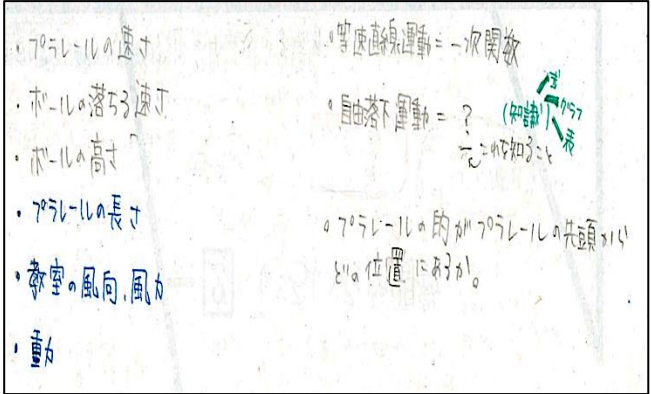 ・プラレールの速さ
・ボールの落ちる速さ
・ボールの高さ
・プラレールの長さ
・教室の風向、風力
・重力
・等速直線運動=一次関数
・自由落下運動=?
(知識)
式
グラフ
表
これを知ること
・プラレールの的がプラレールの先頭から
どの位置にあるか。